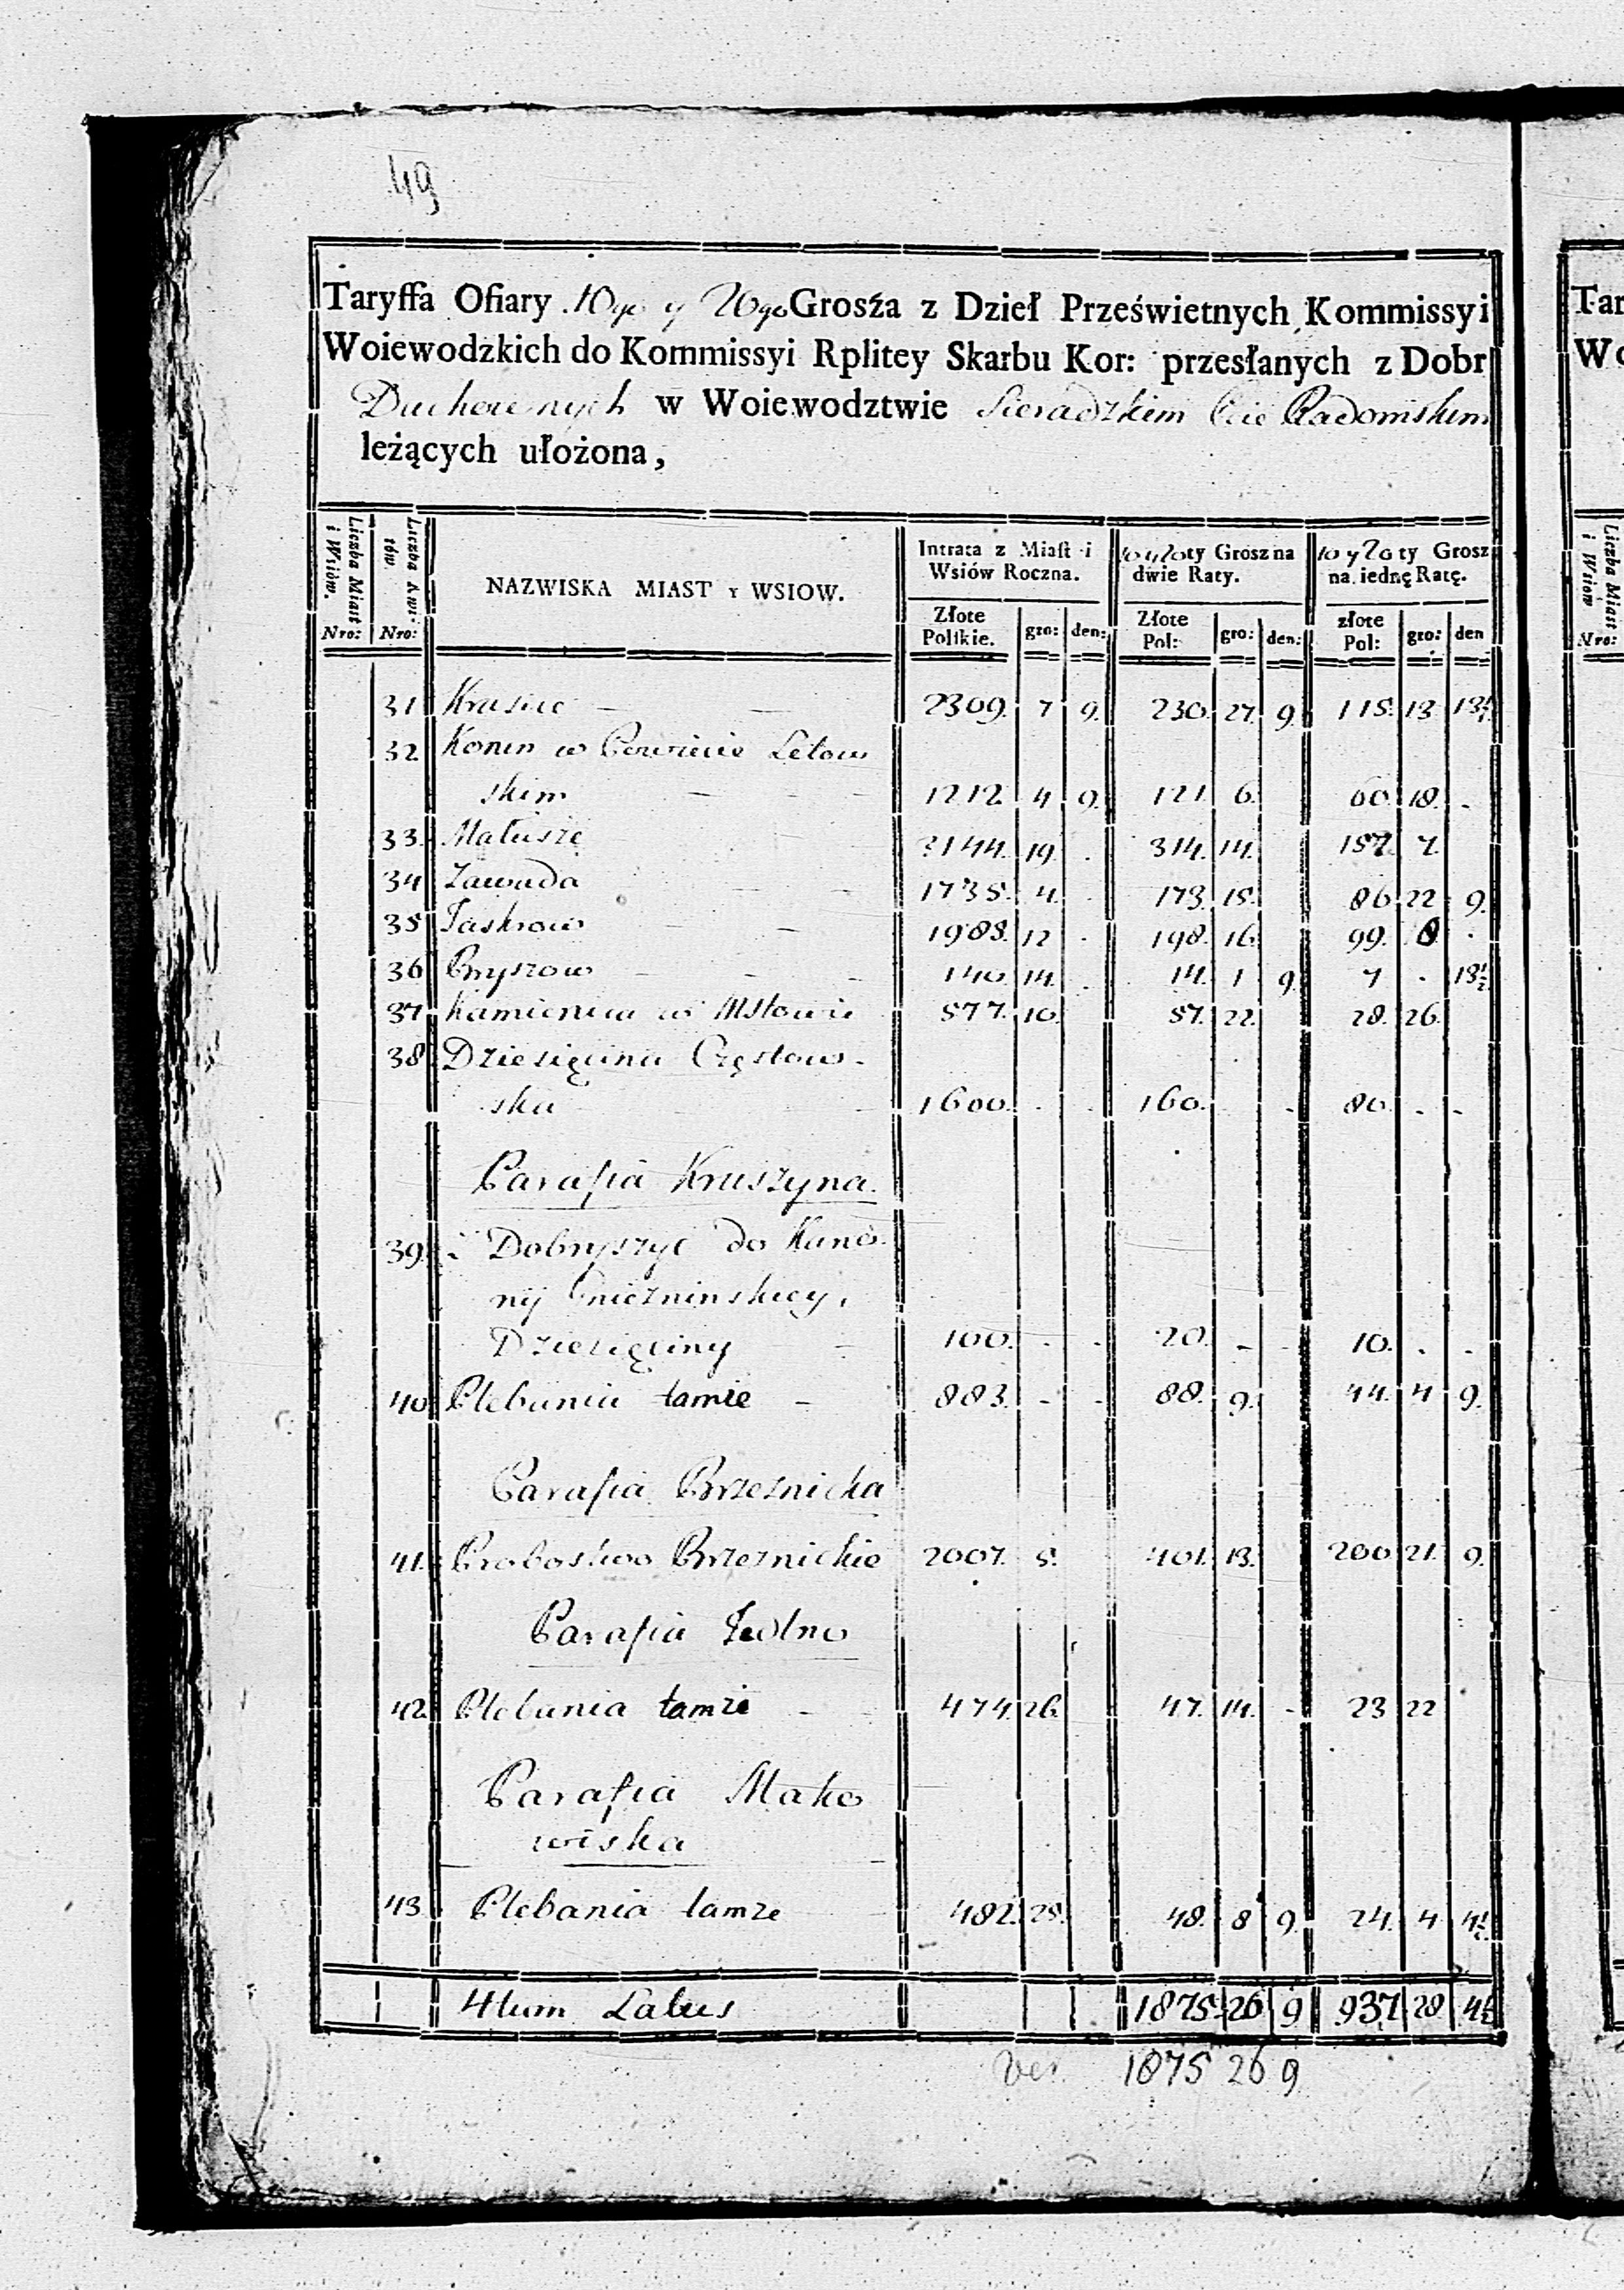 49
Taryffa Ofiary 10go y 20go Grosza z Dzieł Prześwietnych Kommissyi
Woiewodzkich do Kommissyi Rplitey Skarbu Kor: przesłanych z Dobr
Duchownych w Woiewodztwie Sieradzkim Radomskim
leżących ułożona,
Liczba Miast i Wsiów. Nro: Liczba Kwitów. Nro: NAZWISKA MIAST Y WSIOW. Intrata z Miast i Wsiów Roczna. 10 y 20ty Grosz na dwie Raty. 10 y 20ty Grosz na iednę Ratę.
Złote Polskie. gro: den: Złote Pol: gro: den: złote Pol: gro: den
31 Krasice 2309. 7 9. 230. 27. 9. 115. 13 13½
32 Konin w Powiecie Lelow
skim 1212. 4 9. 121. 6. 60. 18. -
33. Małusze 3144. 19. 314. 14. 157. 7.
34 Zawada 1735. 4. 173. 15. 86. 22 9.
35 Jaskrow 1985. 12 198. 16. 99. 8.
36 Przyszow 140. 14. 14. 1 9. 7 . 13½
37 Kamienica w Mstowie 577. 10. 57. 22. 28. 26.
38 Dziesięcina Częstow-
ska 1600. - - 160. - 80. - -
Parafia Kruszyna.
39. Z Dobryszyc do Kano-
nij Gniezninskiey,
Dziesięciny 100. - - 20. - - 10. - -
40 Plebania tamże - 883. - - 88. 9. 44. 4 9.
Parafia Brzeznicka
41. Probostwo Brzeznickie 2007. 5. 401. 13. 200. 21. 9.
Parafia Jedlno
42. Plebania tamże - 474. 26. 47. 14. - 23 22
Parafia Mako
wiska
43. Plebania tamze 482. 28. 48. 8 9. 24. 4 4½
4tum Latus 1875. 26 9 937. 28 4½
ver. 1875 26 9
Tar
Wo
Liczba Miast i Wsiow
Nro: